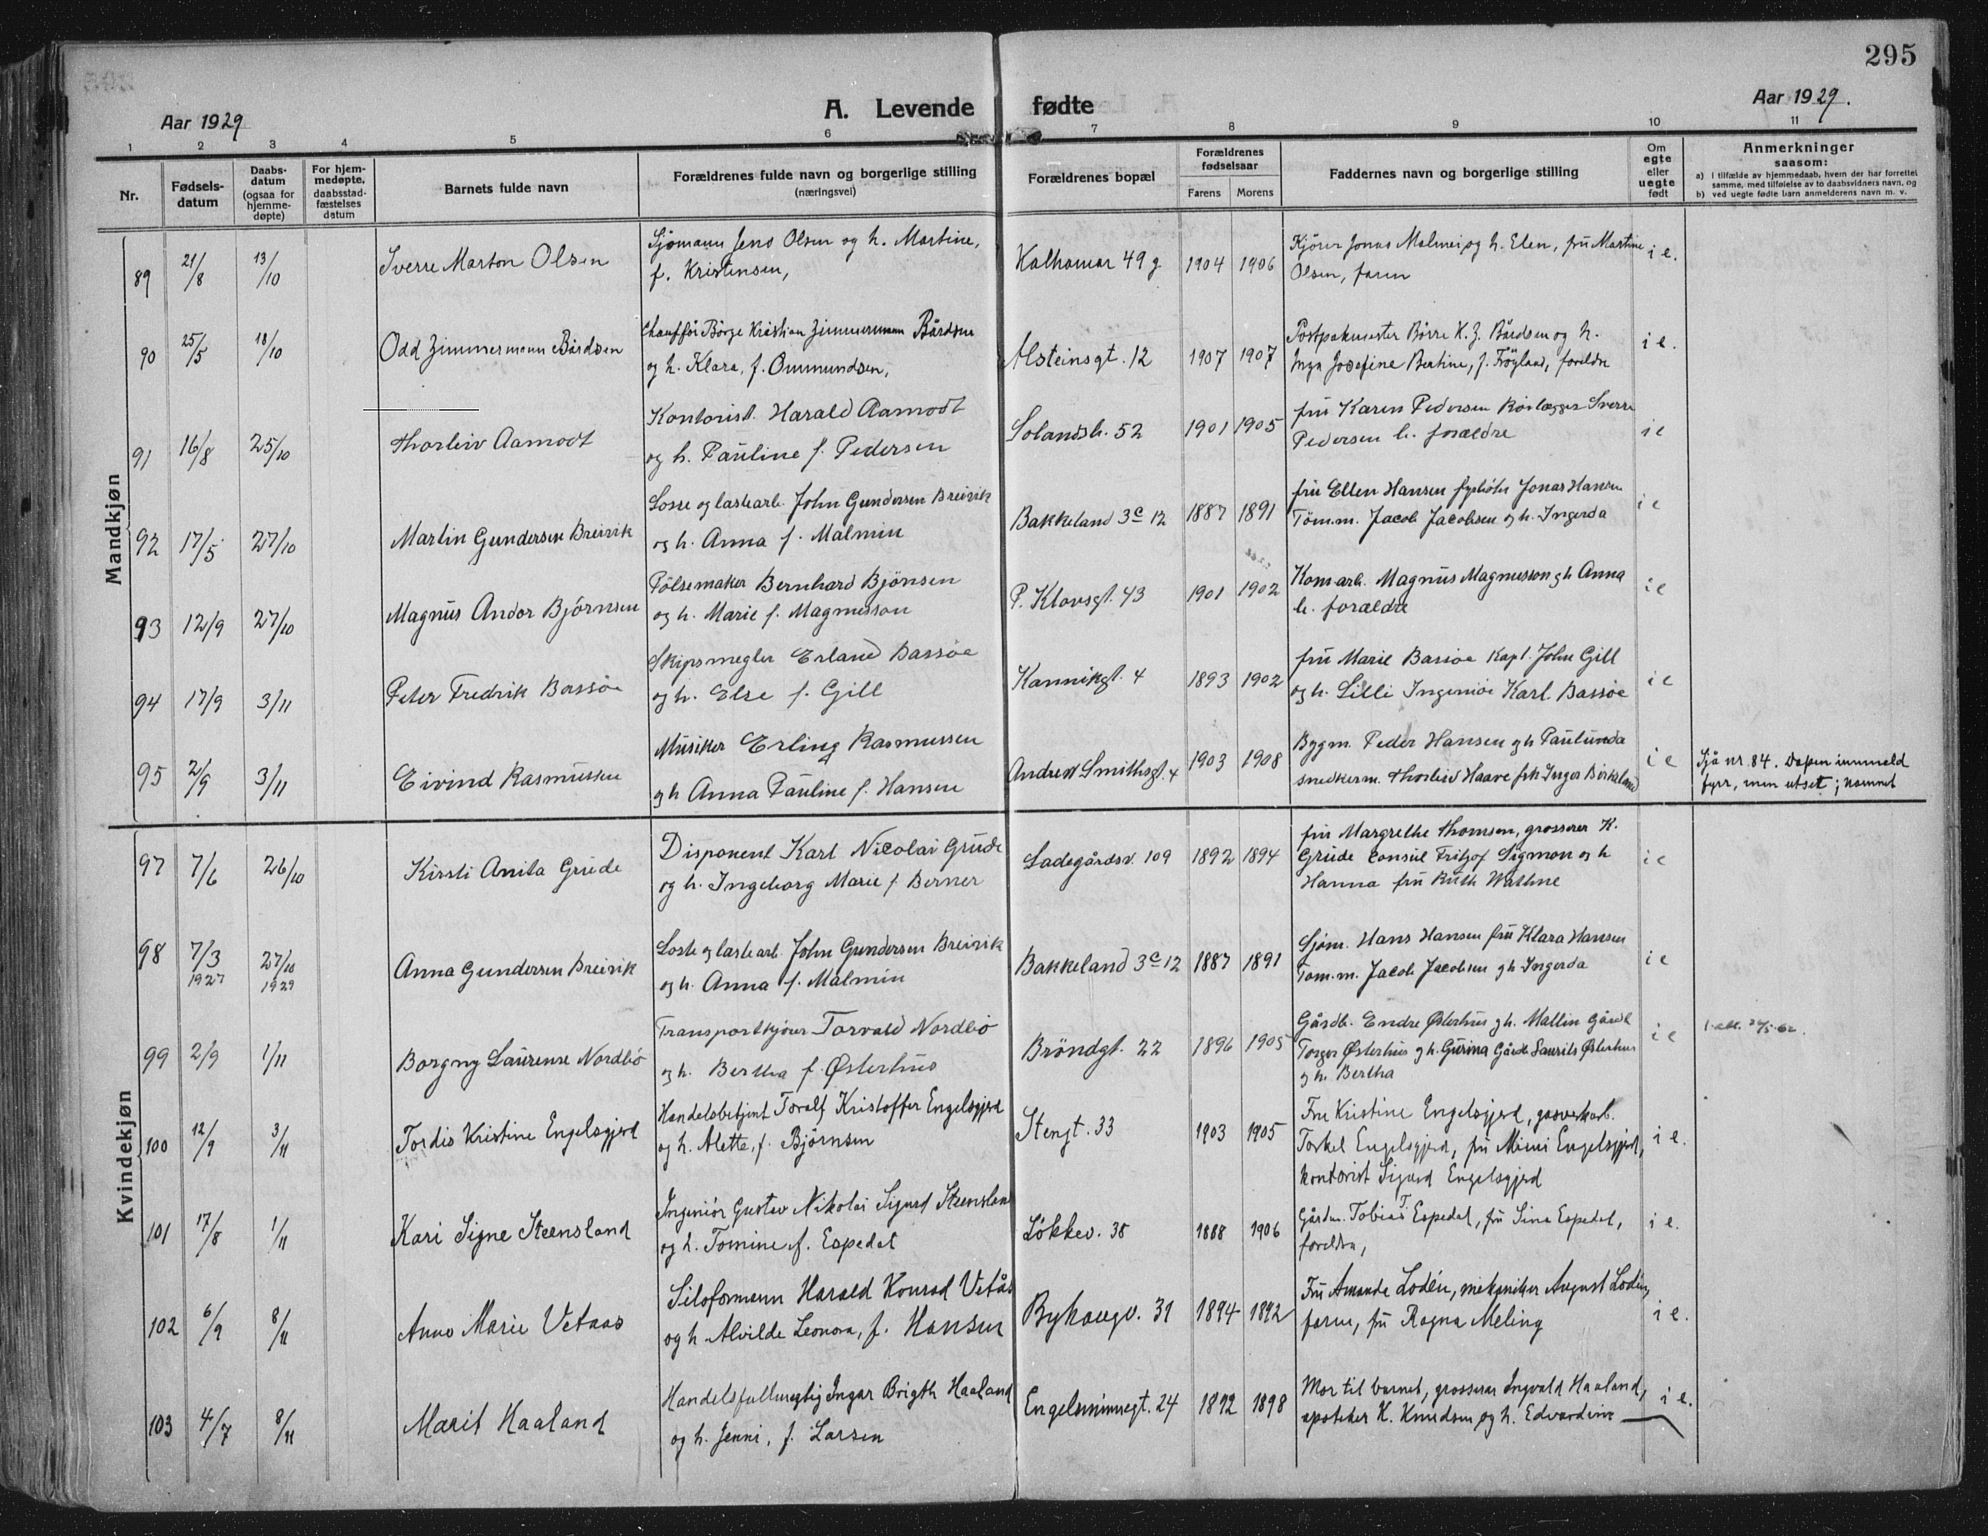 295
Aar 1929
A. Levende fødte
Aar 1929.
1 2 3 4 5 6 7 8 9 10 11
Nr.
Fødsels-
datum
Daabs-
datum
(ogsaa for
hjemme-
døpte)
For hjem-
medøpte,
daabsstad-
fæstelses
datum
Barnets fulde navn
Forældrenes fulde navn og borgerlige stilling
(næringsvei)
Forældrenes bopæl
Forældrenes
fødselsaar
Farens Morens
Faddernes navn og borgerlige stilling
Om
egte
eller
uegte
født
Anmerkninger
saasom:
a) i tilfælde av hjemmedaab, hvem der har forrettet
samme, med tilføielse av to daabsvidners navn, og
b) ved uegte fødte barn anmelderens navn m. v.
Mandkjøn
89 21/8 13/10 Sverre Marton Olsen
Sjømann Jens Olsen og h. Martine,
f. Kristensen,
Kalhamar 49 g 1904 1906
Kjører Jonas Malmei og h. Elen, fru Martine
Olsen, faren
i e.
90 25/5 18/10 Odd Zimmermann Bårdsen
Chauffør Börge Kristian Zimmermann Bårdsen
og h. Klara, f. Ommundsen,
Alsteinsgt. 12 1907 1907
Postpakmester Börre K. Z. Bårdsen og h.
Inga Josefine Bertine, f. Fröyland, foreldre
i e.
91 16/8 25/10 Thorleiv Aamodt
Kontorist Harald Aamodt
og h. Pauline f. Pedersen
Solandsb. 52 1901 1905
fru Karen Pedersen Rörlegger Sverre
Pedersen b. forældre
i e
92 17/5 27/10 Martin Gundersen Breivik
Losse og lastearb. John Gundersen Breivik
og h. Anna f. Malmin
Bakkeland 3c 12 1887 1891
fru Ellen Hansen Jonas Hansen
Tömm. Jacob Jacobsen og h. Ingerda
i e
93 12/9 27/10 Magnus Andor Björnsen
Pölsemaker Bernhard Björnsen
og h. Marie f. Magnusson
P. Klowsgt. 43 1901 1902
Komarb. Magnus Magnusson gh Anna
b. forældre
i e
94 17/9 3/11 Peter Fredrik Bassøe
Skipsmegler Erland Bassøe
og h. Else f. Gill
Kannikgt. 4 1893 1902
fru Marie Bassøe Kapt. John Gill
og h. Lilli Ingeniør Karl Bassøe
i e
95 2/9 3/11 Eivind Rasmussen
Musiker Erling Rasmussen
gh Anna Pauline f. Hansen
Andrew Smithsgt. 4 1903 1908
Bygm. Peder Hansen gh Paulunda
snedkerm. Thorleiv Haave frk Inger Birkeland
i e
Sjå nr. 84. Dåpen innmeld
fyrr, men utset; namnet
Kvindekjøn
97 7/6 26/10 Kirsti Anita Grude
Disponent Karl Nicolai Grude
og h. Ingeborg Marie f. Berner
Ladegårdsv. 109 1892 1894
fru Margrethe Thomsen, grosserer K.
Grude Consul Fritjof Sigmon og h
Hanna fru Ruth Wathne
i e
98 7/3 1927 27/10 1929 Anna Gundersen Breivik
Losse og lastearb. John Gundersen Breivik
og h. Anna f. Malmin
Bakkeland 3c 12 1887 1891
Sjöm. Hans Hansen fru Klara Hansen
Töm.m. Jacob Jacobsen gh Ingerda
i e
99 2/9 1/11 Borgny Laurense Nordbö
Transportkjører Torvald Nordbö
og h. Bertha f. Østerhus
Bröndgt. 22 1896 1905
Gårdb. Endre Østerhus gh. Mallin Gårdb
Torger Østerhus gh. Gurina Gårdb Laurits Østerhus
og h. Bertha
i e
100 12/9 3/11 Tordis Kristine Engelsgjerd
Handelsbetjent Toralf Kristoffer Engelsgjerd
og h. Alette, f. Björnsen
Stengt. 33 1903 1905
Fru Kristine Engelsgjerd, gasverkarb.
Torkel Engelsgjerd, fru Mimi Engelsgjerd,
kontorist Sigurd Engelsgjerd
i e.
101 17/8 1/11 Kari Signe Steensland
Ingeniör Gustav Nikolai Sigurd Steensland
og h. Tomine f. Espedal
Løkkev. 38 1888 1906
Gårdm. Tobias T. Espedal, fru Sina Espedal,
foreldre,
i e.
102 6/9 8/11 Anna Marie Vetaas
Siloformann Harald Konrad Vetås
og h Alvilde Leonora, f. Hansen
Byhaugv. 31 1894 1892
Fru Amanda Lodén, mekaniker August Lodén,
faren, fru Ragna Meling
i e.
103 4/7 8/11 Marit Haaland
Handelsfullmegtig Ingar Brigth Haaland
og h. Jenni, f. Larsen
Engelsminnegt. 24 1892 1898
Mor til barnet, grosserar Ingvald Haaland,
apoteker K. Knudsen og h. Edvardine
i e.